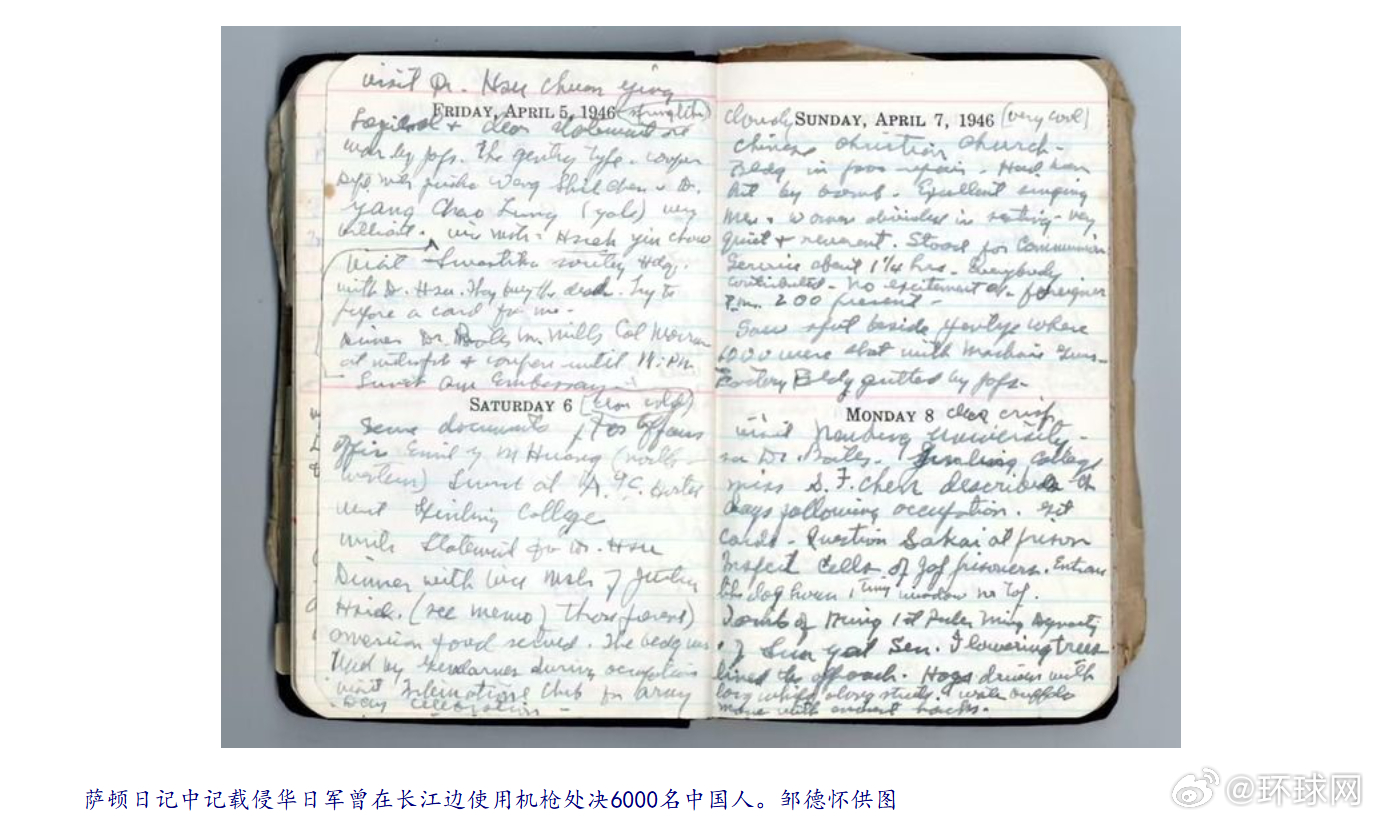 visit Dr. Hsu Chuan Ying
FRIDAY, APRIL 5, 1946 (springlike)
Logical & clear statement re
war by Japs. The gentry type. Confer
with Wang Shih chen & Dr.
Yang Chao Lung (yale) very
brilliant. vice mstr. Hsieh yin chow
Visit Swastika society Hdq.
with Dr. Hsu. They bury the dead. Try to
a card for me -
Dinner Dr. Bates Mr. Mills Col Morrow
at & confer until P.M.
Am Embassy
SATURDAY 6 (clear cold)
documents For Affairs
office Emily M Huang (north
western) at Hostel
visit Ginling College
write statement for Dr. Hsu
Dinner with vice mstr of Justice
Hsieh. (see memo) present)
American food served. The bldg was
used by Gendarmes during occupation
visit International Club for Army
Day celebration -
cloudy SUNDAY, APRIL 7, 1946 (very cool)
Chinese Christian Church -
Bldg in poor repair - Had been
hit by bomb. Excellent singing
Men & women divided in seating - very
quiet & reverent. Stood for Communion
Service about 1 1/4 hrs - Everybody
contributed - no excitement as foreigner
200 present -
Saw spot beside Yangtze where
6000 were shot with Machine Guns -
Bldg gutted by Japs -
MONDAY 8 clear crisp
visit Nanking University -
see Dr. Bates - Ginling College
miss S. F. Chen describes the
days following occupation. get
cards - Question Sakai at prison
Inspect cells of Jap prisoners. Entrance
like dog house 1 tiny window no top.
Tomb of Ming 1st Ruler Ming Dynasty
& Sun Yat Sen. Flowering trees
lined the approach. Hogs driven with
long whips along street. water buffalo
with
萨顿日记中记载侵华日军曾在长江边使用机枪处决6000名中国人。邹德怀供图
@环球网